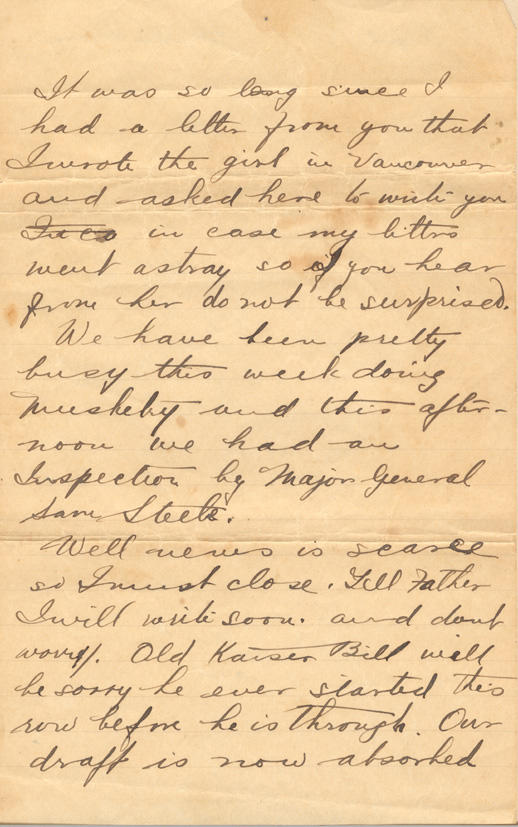 It was so long since I
had a letter from you that
I wrote the girl in Vancouver
and asked here to write you
in case my letters
went astray so if you hear
from her do not be surprised.
We have been pretty
busy this week doing
Musketry and this after-
noon we had an
Inspection by Major General
Sam Steele.
Well news is scarce
so I must close. Tell Father
I will write soon. and dont
worry. Old Kaiser Bill will
be sorry he ever started this
row before he is through. Our
draft is now absorbed